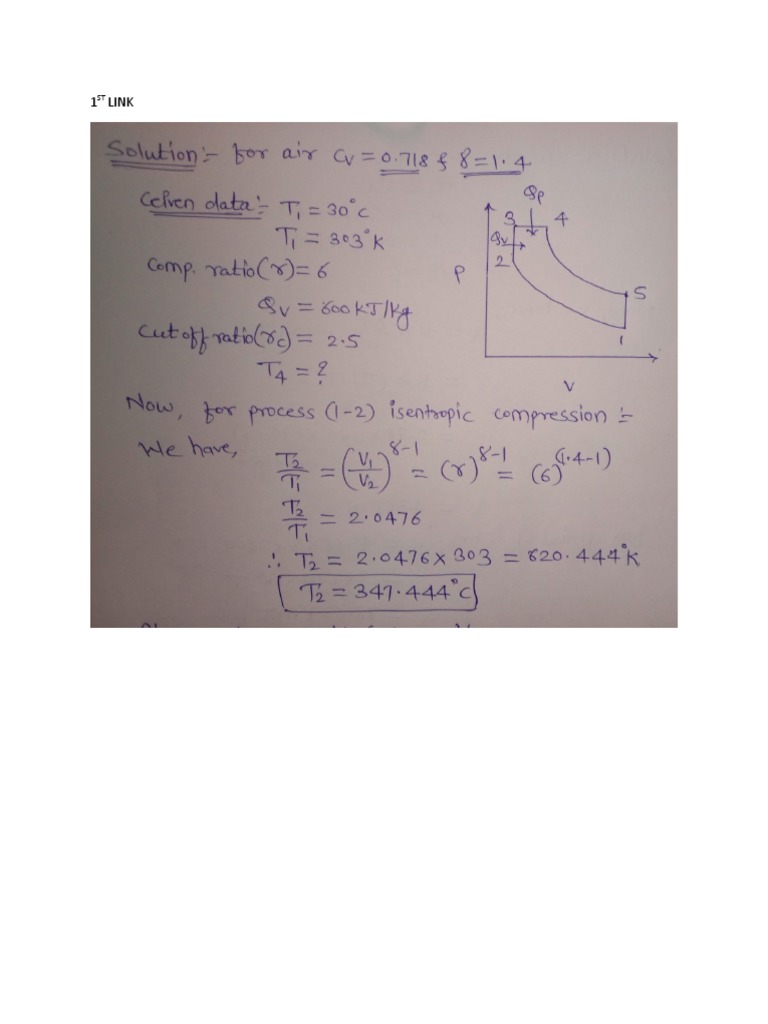 1ST LINK
Solution:- for air Cv = 0.718 & γ = 1.4
Given data:- T₁ = 30°C
T₁ = 303°K
Comp. ratio(r) = 6
Qv = 600 KJ/kg
Cut off ratio(rc) = 2.5
T₄ = ?
Qp
3 4
Qv
2
P
5
1
V
Now, for process (1-2) isentropic compression :-
We have, T₂/T₁ = (V₁/V₂)^γ-1 = (r)^γ-1 = (6)^(1.4-1)
T₂/T₁ = 2.0476
∴ T₂ = 2.0476 x 303 = 620.444°K
T₂ = 347.444°C